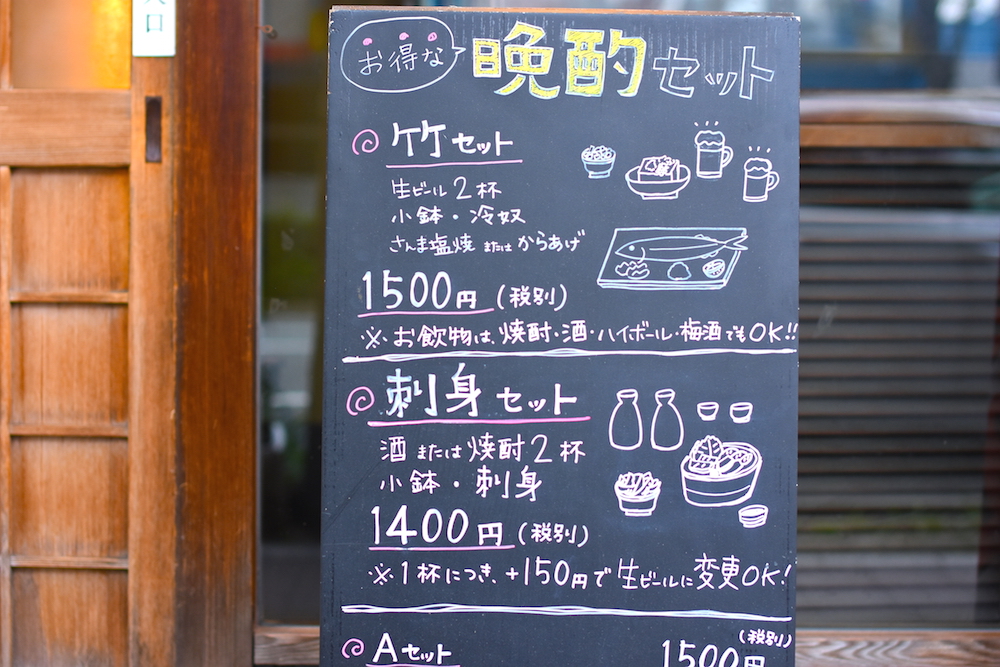 入口
お得な
晩酌セット
竹セット
生ビール2杯
小鉢・冷奴
さんま塩焼 または からあげ
1500円(税別)
※お飲物は、焼酎・酒・ハイボール・梅酒でもOK!!
刺身セット
酒 または 焼酎2杯
小鉢・刺身
1400円(税別)
※1杯につき、+150円で生ビールに変更OK!
Aセット
(税別)
1500円